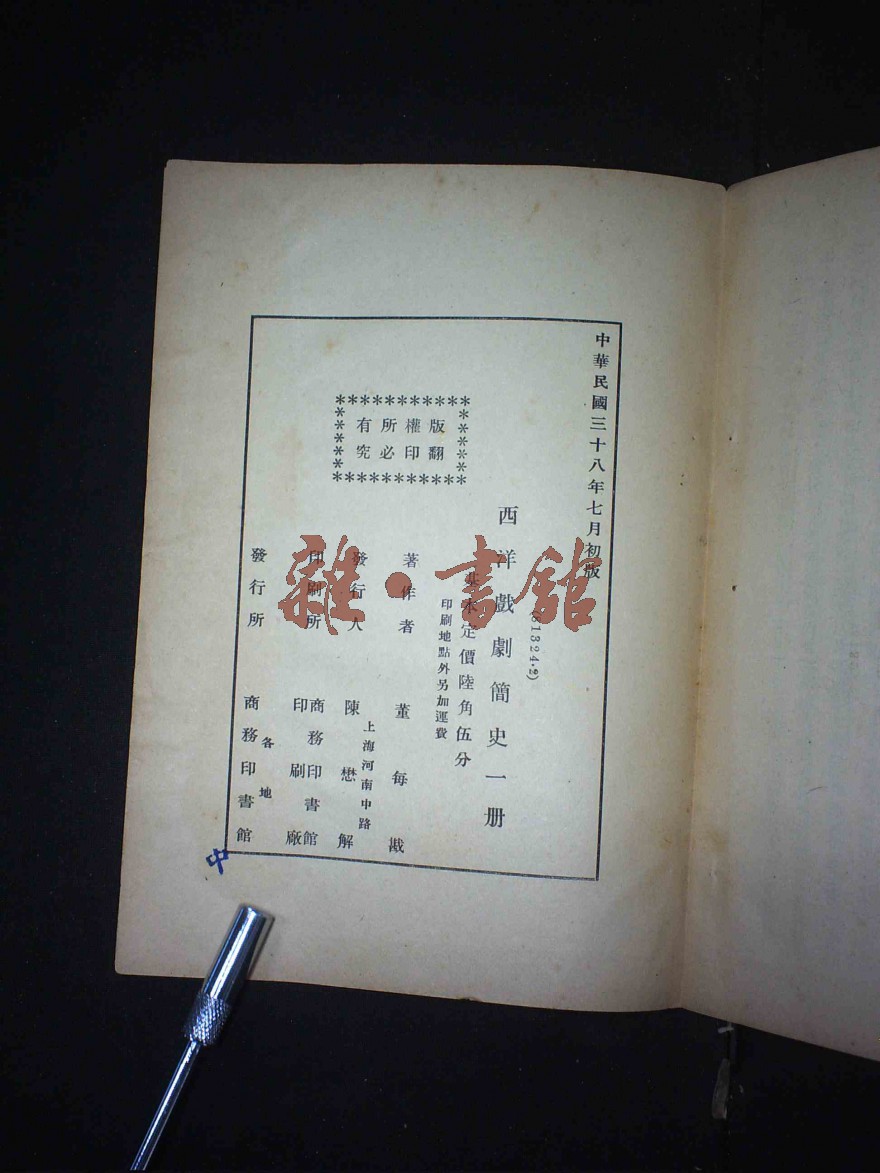 中華民國三十八年七月初版
版權所有
翻印必究
(81324·2)
西洋戲劇簡史一册
基本定價陸角伍分
印刷地點外另加運費
著作者 董每戡
發行人 陳懋解
上海河南中路
印刷所 商務印書館
印刷廠
發行所 商務印書館
各地
雜·書館
中